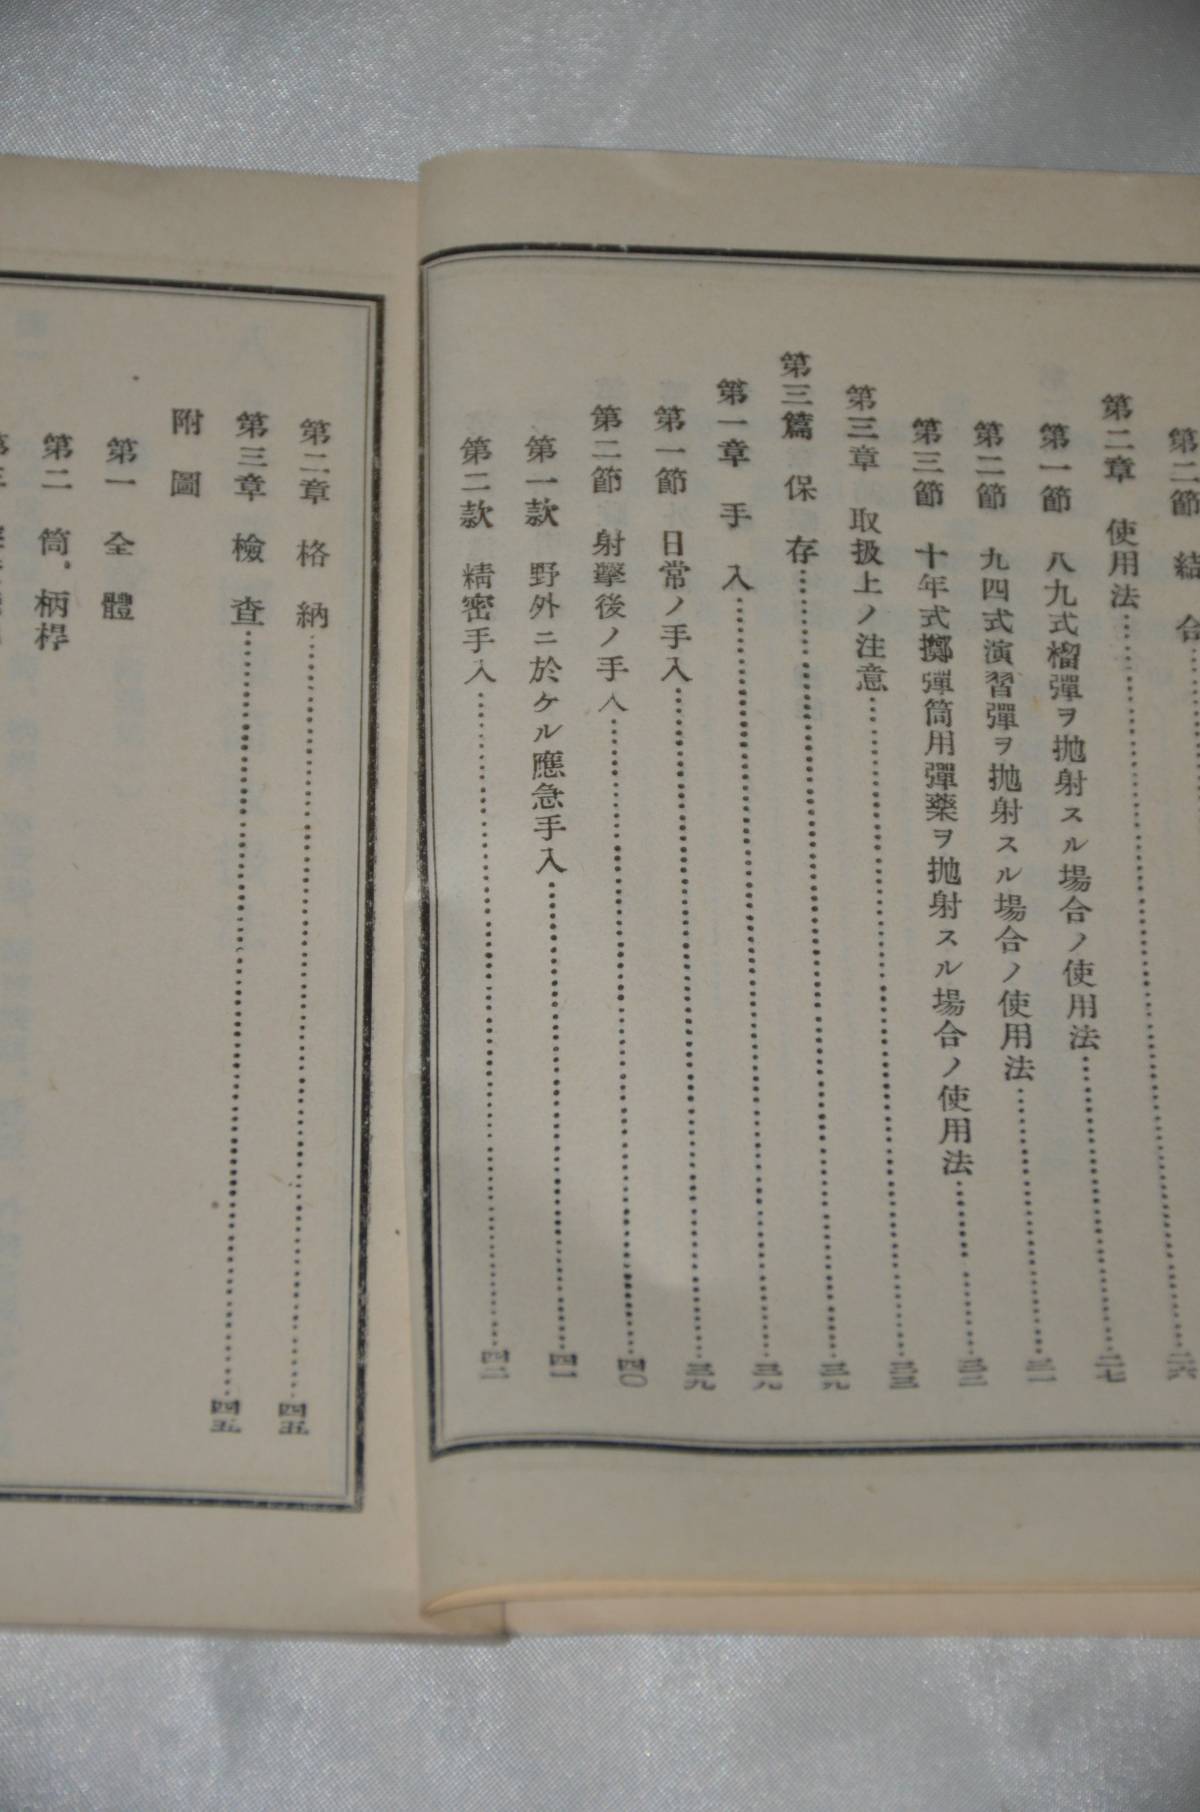 第二節 結合……二六
第二章 使用法……二七
第一節 八九式榴彈ヲ拋射スル場合ノ使用法……二七
第二節 九四式演習彈ヲ拋射スル場合ノ使用法……三一
第三節 十年式擲彈筒用彈藥ヲ拋射スル場合ノ使用法……三二
第三章 取扱上ノ注意……三三
第三篇 保存……三九
第一章 手入……三九
第一節 日常ノ手入……三九
第二節 射擊後ノ手入……四〇
第一款 野外ニ於ケル應急手入……四一
第二款 精密手入……四二
第二章 格納……四五
第三章 檢查……四五
附圖
第一 全體
第二 筒、柄桿